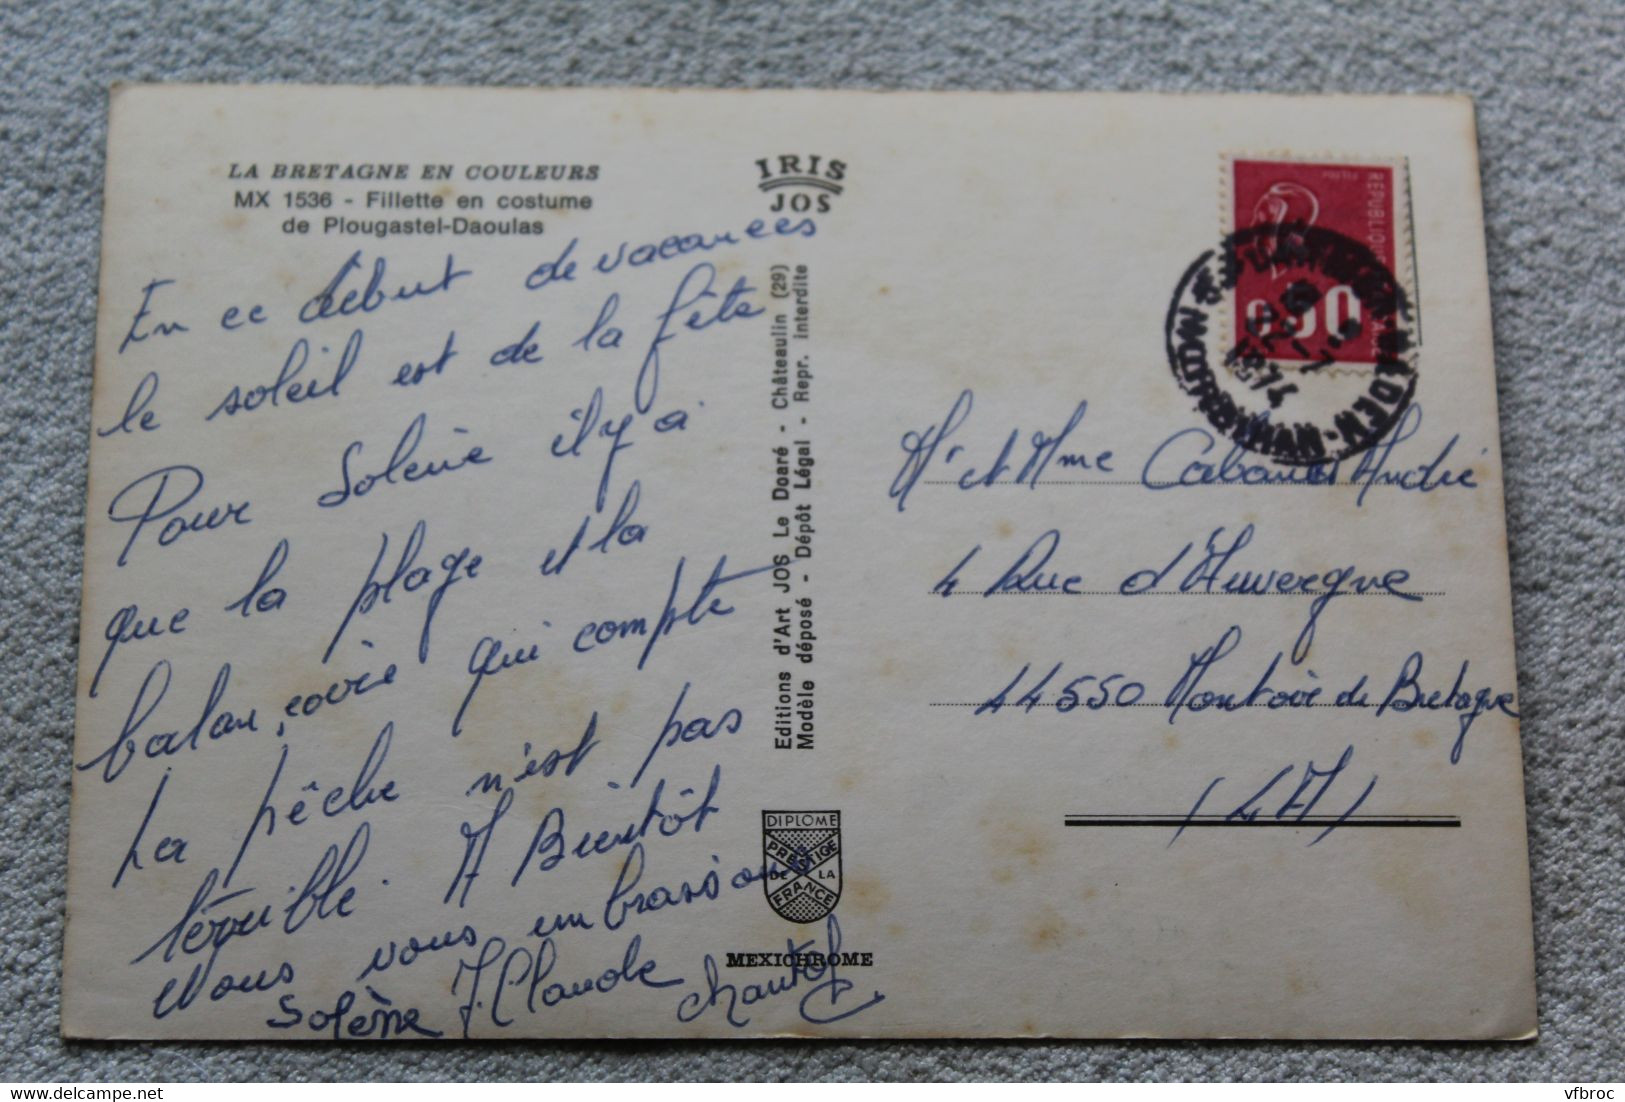 LA BRETAGNE EN COULEURS
MX 1536 - Fillette en costume
de Plougastel-Daoulas
IRIS
JOS
En ce début de vacances
le soleil est de la fête
Pour Solène il y a
que la plage et la
balançoire qui compte
La pêche n'est pas
terrible. A Bientôt
Nous vous embrassons
Solène J. Claude Chantal
Editions d'Art JOS Le Doaré - Châteaulin (29)
Modèle déposé - Dépôt Légal - Repr. interdite
DIPLOME
PRESTIGE
DE LA
FRANCE
MEXICHROME
REPUBLIQUE
0,60
MORBIHAN
Mr et Mme André
4 Rue d'Auvergne
44550 Montoir de Bretagne
(L A)
vfbroc